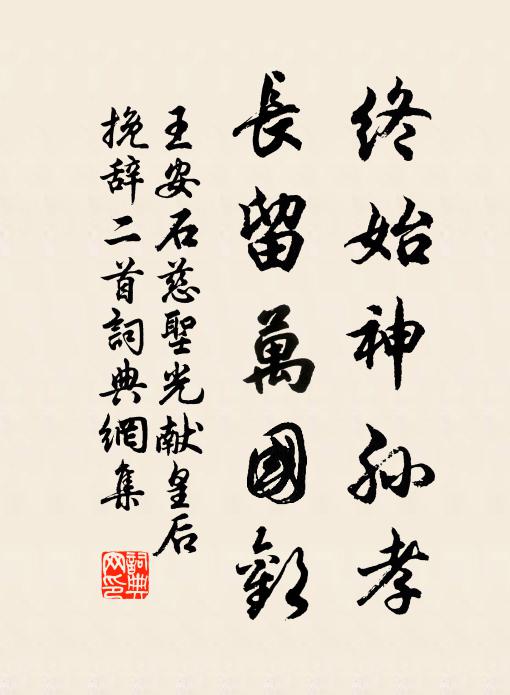 終始神孫孝
長留萬國歡
王安石慈聖光献皇后
挽辞二首詞典網集
詞典
网印